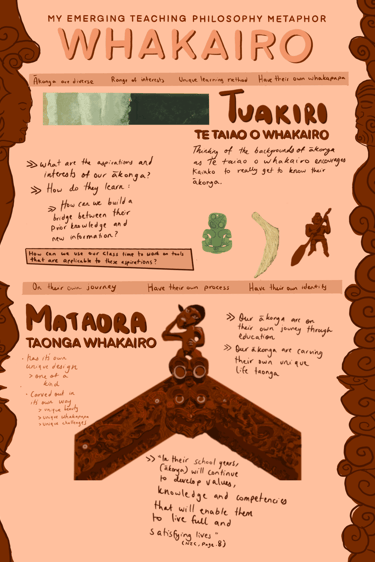 MY EMERGING TEACHING PHILOSOPHY METAPHOR
WHAKAIRO
Ākonga are diverse Range of interests Unique learning method Have their own whakapapa
TUAKIRI
TE TAIAO O WHAKAIRO
Thinking of the backgrounds of ākonga
as Te taiao o whakairo encourages
Kaiako to really get to know their
ākonga.
>> What are the aspirations and
interests of our ākonga?
>> How do they learn?
>> How can we build a
bridge between their
prior knowledge and
new information?
How can we use our class time to work on tools
that are applicable to these aspirations?
On their own journey Have their own process Have their own identity
MATAORA
TAONGA WHAKAIRO
- Has its own
unique design
> one of a
kind
- Carved out in
its own way
> unique beauty
> unique whakapapa
> unique challenges
>> Our ākonga are on
their own journey through
education.
>> Our ākonga are carving
their own unique
life taonga
>> "In their school years,
(ākonga) will continue
to develop values,
knowledge and competencies
that will enable them
to live full and
satisfying lives"
(NZC, page 8)